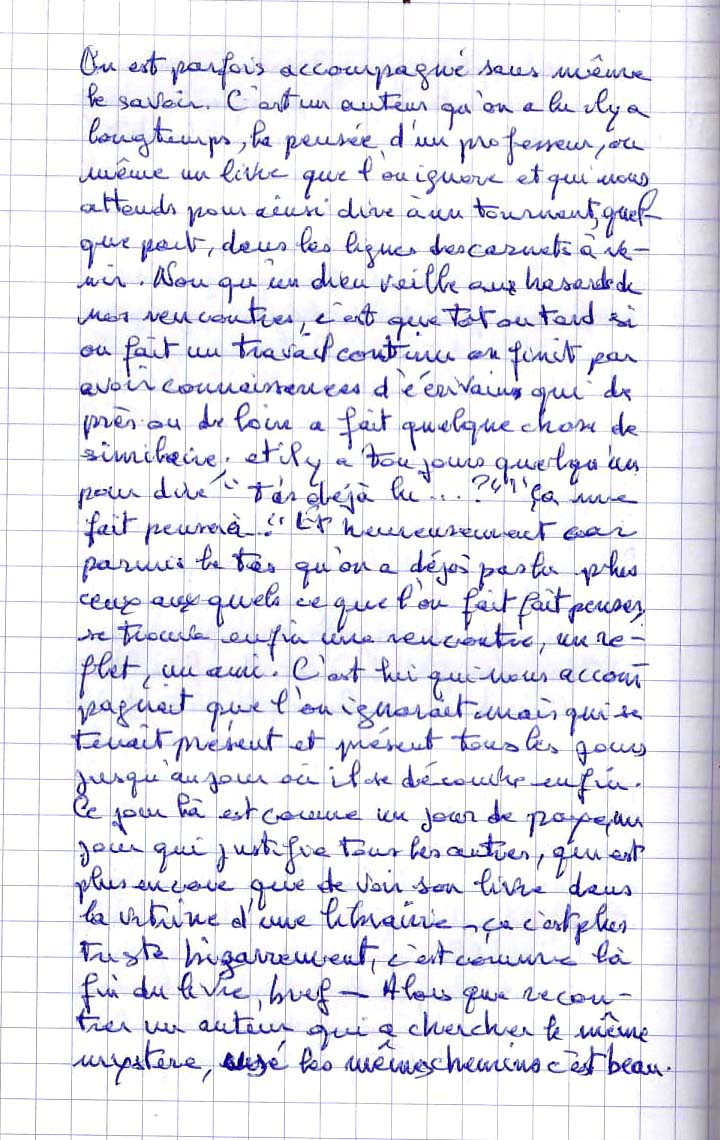 On est parfois accompagné sans même
le savoir. C'est un auteur qu'on a lu il y a
longtemps, la pensée d'un professeur, ou
même un livre que l'on ignore et qui nous
attends pour ainsi dire à un tournant, quel-
que part, dans les lignes des carnets à ve-
nir. Non qu'un dieu veille aux hasards de
nos rencontres, c'est que tôt ou tard si
on fait un travail continu on finit par
avoir connaissances d'écrivains qui de
près ou de loin a fait quelque chose de
similaire, et il y a toujours quelqu'un
pour dire "t'as déjà lu...?" "ça me
fait penser à." Et heureusement car
parmi le tas qu'on a déjà pas lu plus
ceux auxquels ce que l'on fait fait penser,
se trouve enfin une rencontre, un re-
flet, un ami. C'est lui qui nous accom
pagnait que l'on ignorait mais qui se
tenait présent et présent tous les jours
jusqu'au jour où il se découvre enfin.
Ce jour là est comme un jour de paye, un
jour qui justifie tous les autres, qui est
plus encore que de voir son livre dans
la vitrine d'une librairie - ça c'est plus
triste bizarrement, c'est comme la
fin du livre, bref - Alors que recon-
trer un auteur qui a chercher le même
mystère, usé les mêmes chemins c'est beau.